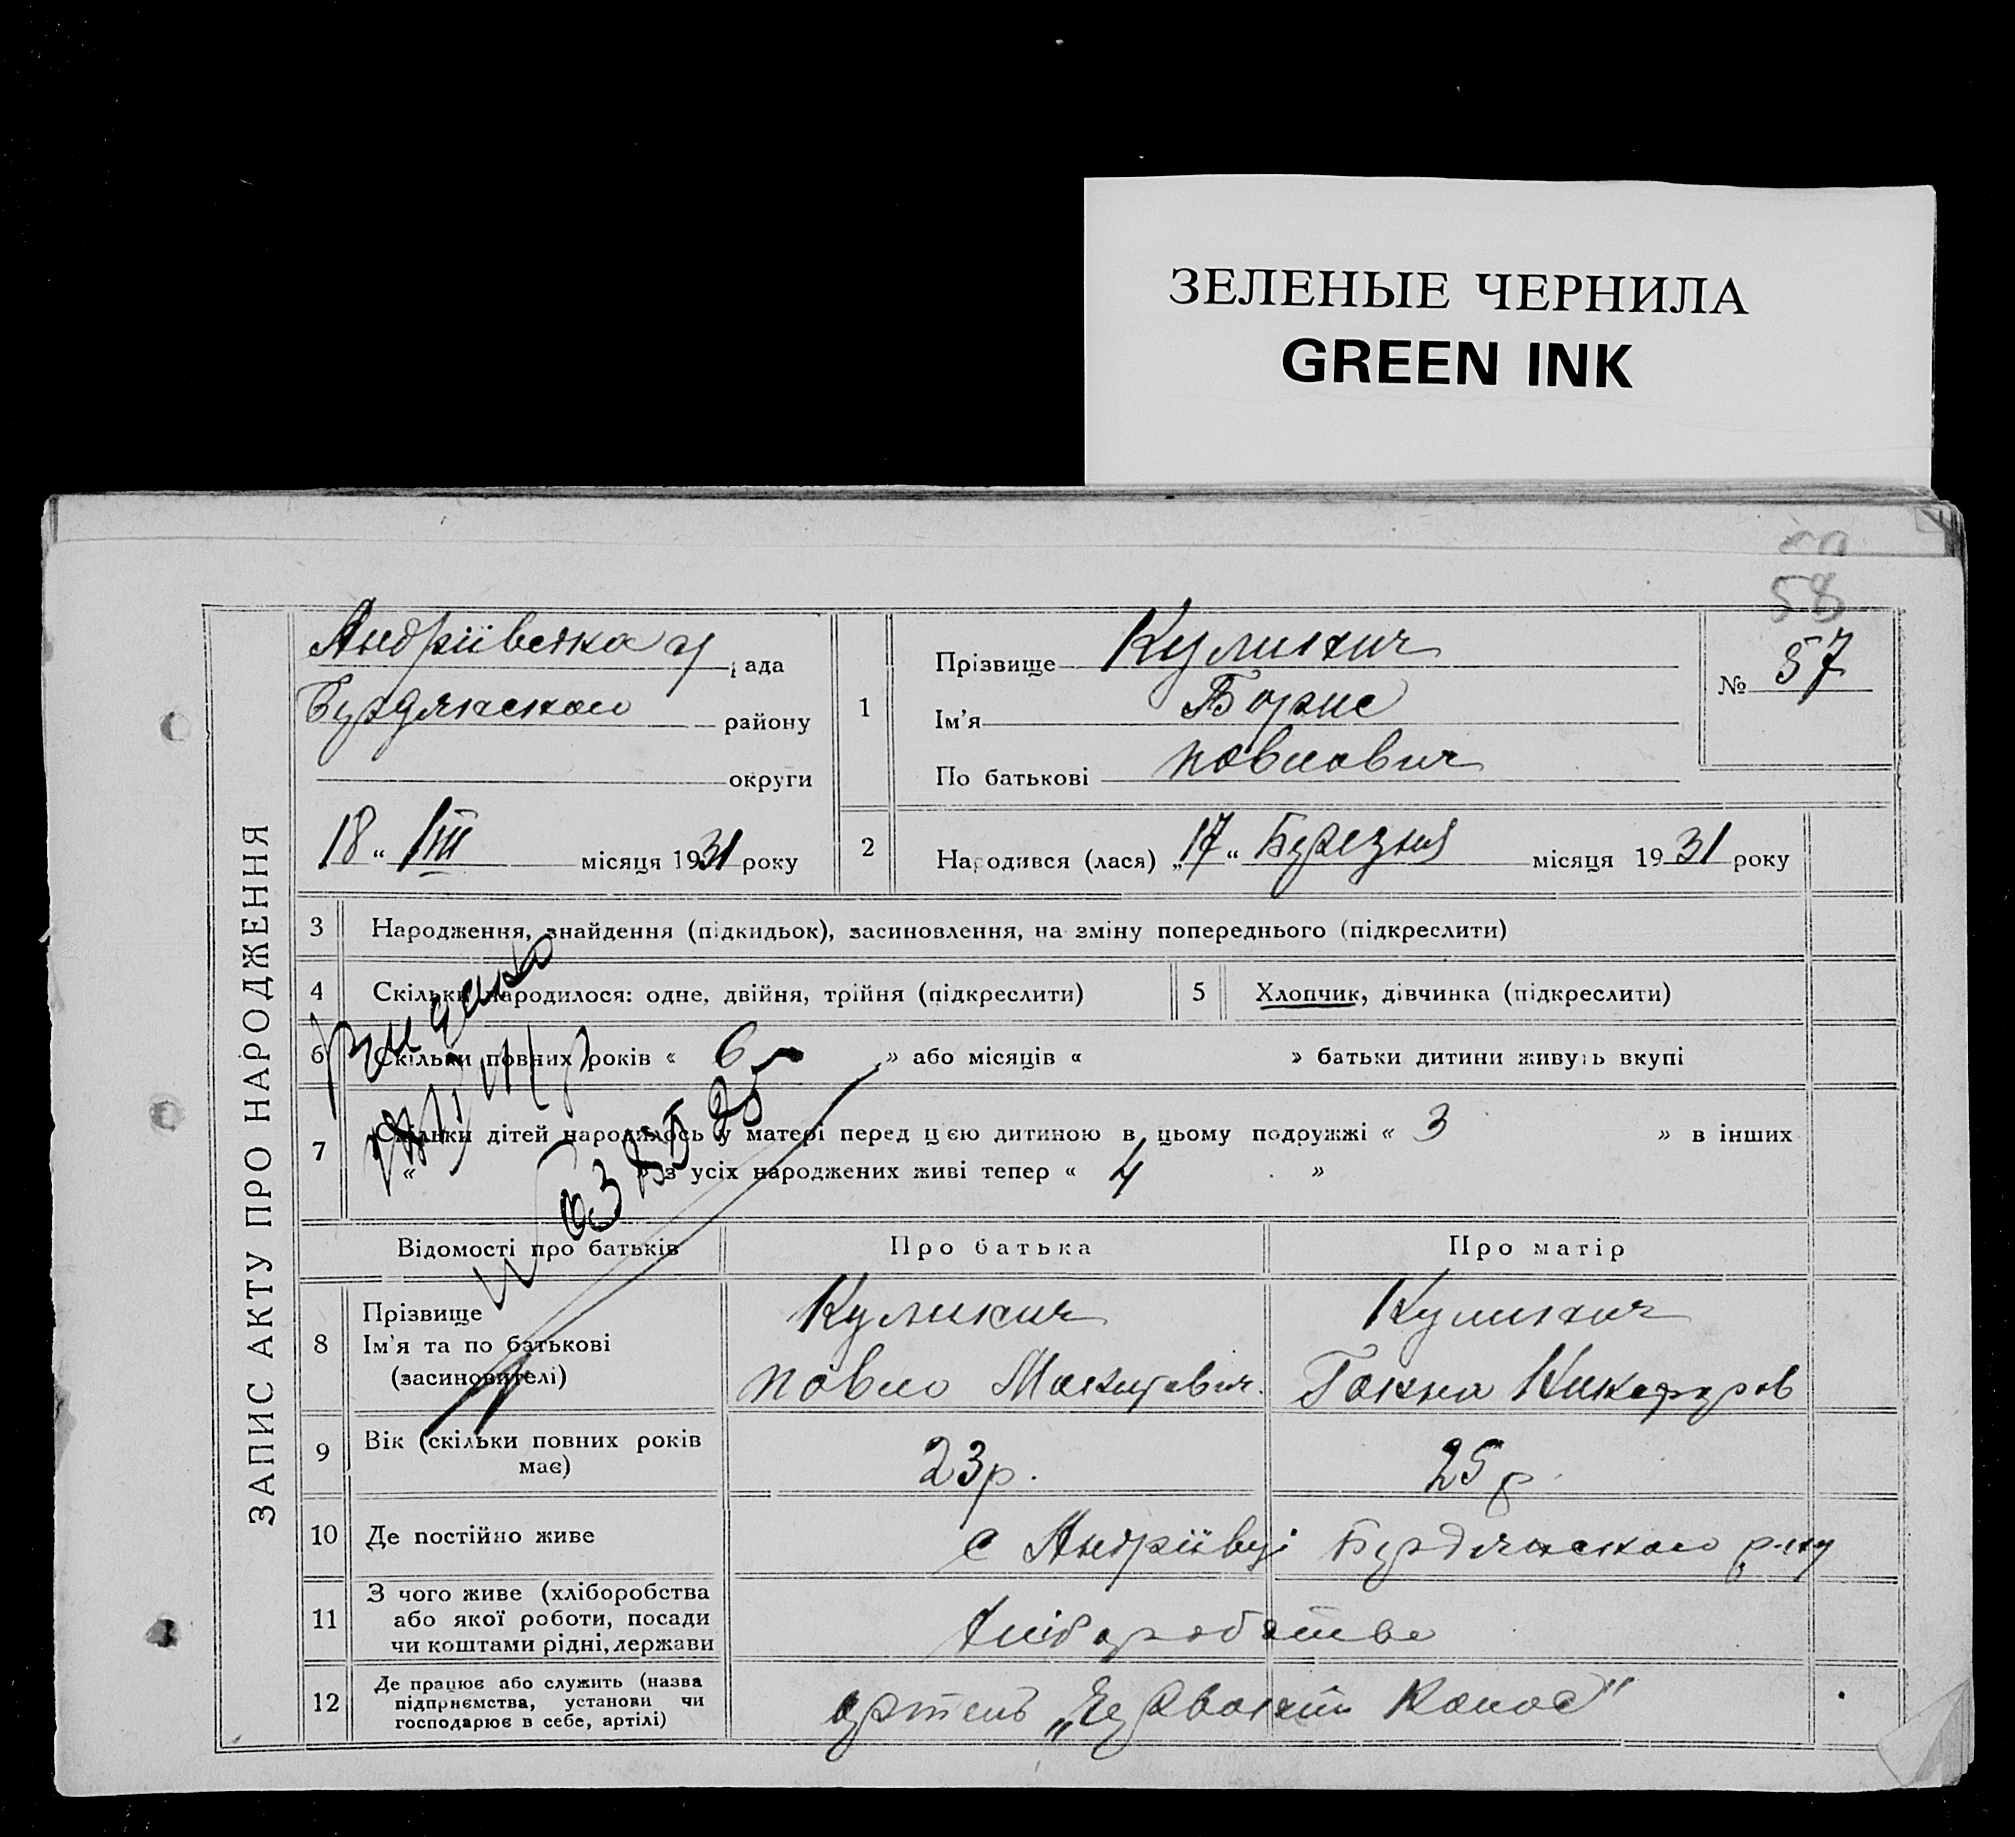 ЗЕЛЕНЫЕ ЧЕРНИЛА
GREEN INK
58
ЗАПИС АКТУ ПРО НАРОДЖЕННЯ
Андріївська рада
Бердянського району
округи
18 " III місяця 1931 року
1
Прізвище Куликич
Ім'я Борис
По батькові Павлович
№ 57
2 Народився (лася) „17" Березня місяця 1931 року
3 Народження, знайдення (підкидьок), засиновлення, на зміну попереднього (підкреслити)
4 Скільки народилося: одне, двійня, трійня (підкреслити)
5 Хлопчик, дівчинка (підкреслити)
6 Скільки повних років « 6 » або місяців « » батьки дитини живуть вкупі
7 Скільки дітей народилось у матері перед цією дитиною в цьому подружжі « 3 » в інших
« » з усіх народжених живі тепер « 4 »
Відомості про батьків Про батька Про матір
8 Прізвище
Ім'я та по батькові
(засиновителі)
Куликич
Павло
Куликич
Ганна
9 Вік (скільки повних років
має)
23р.
25р.
10 Де постійно живе
с Андріївці Бердянського р-ну
11 З чого живе (хліборобства
або якої роботи, посади
чи коштами рідні, держави
Хліборобство
12 Де працює або служить (назва
підприємства, установи чи
господарює в себе, артілі)
артель „Червоний Колос"